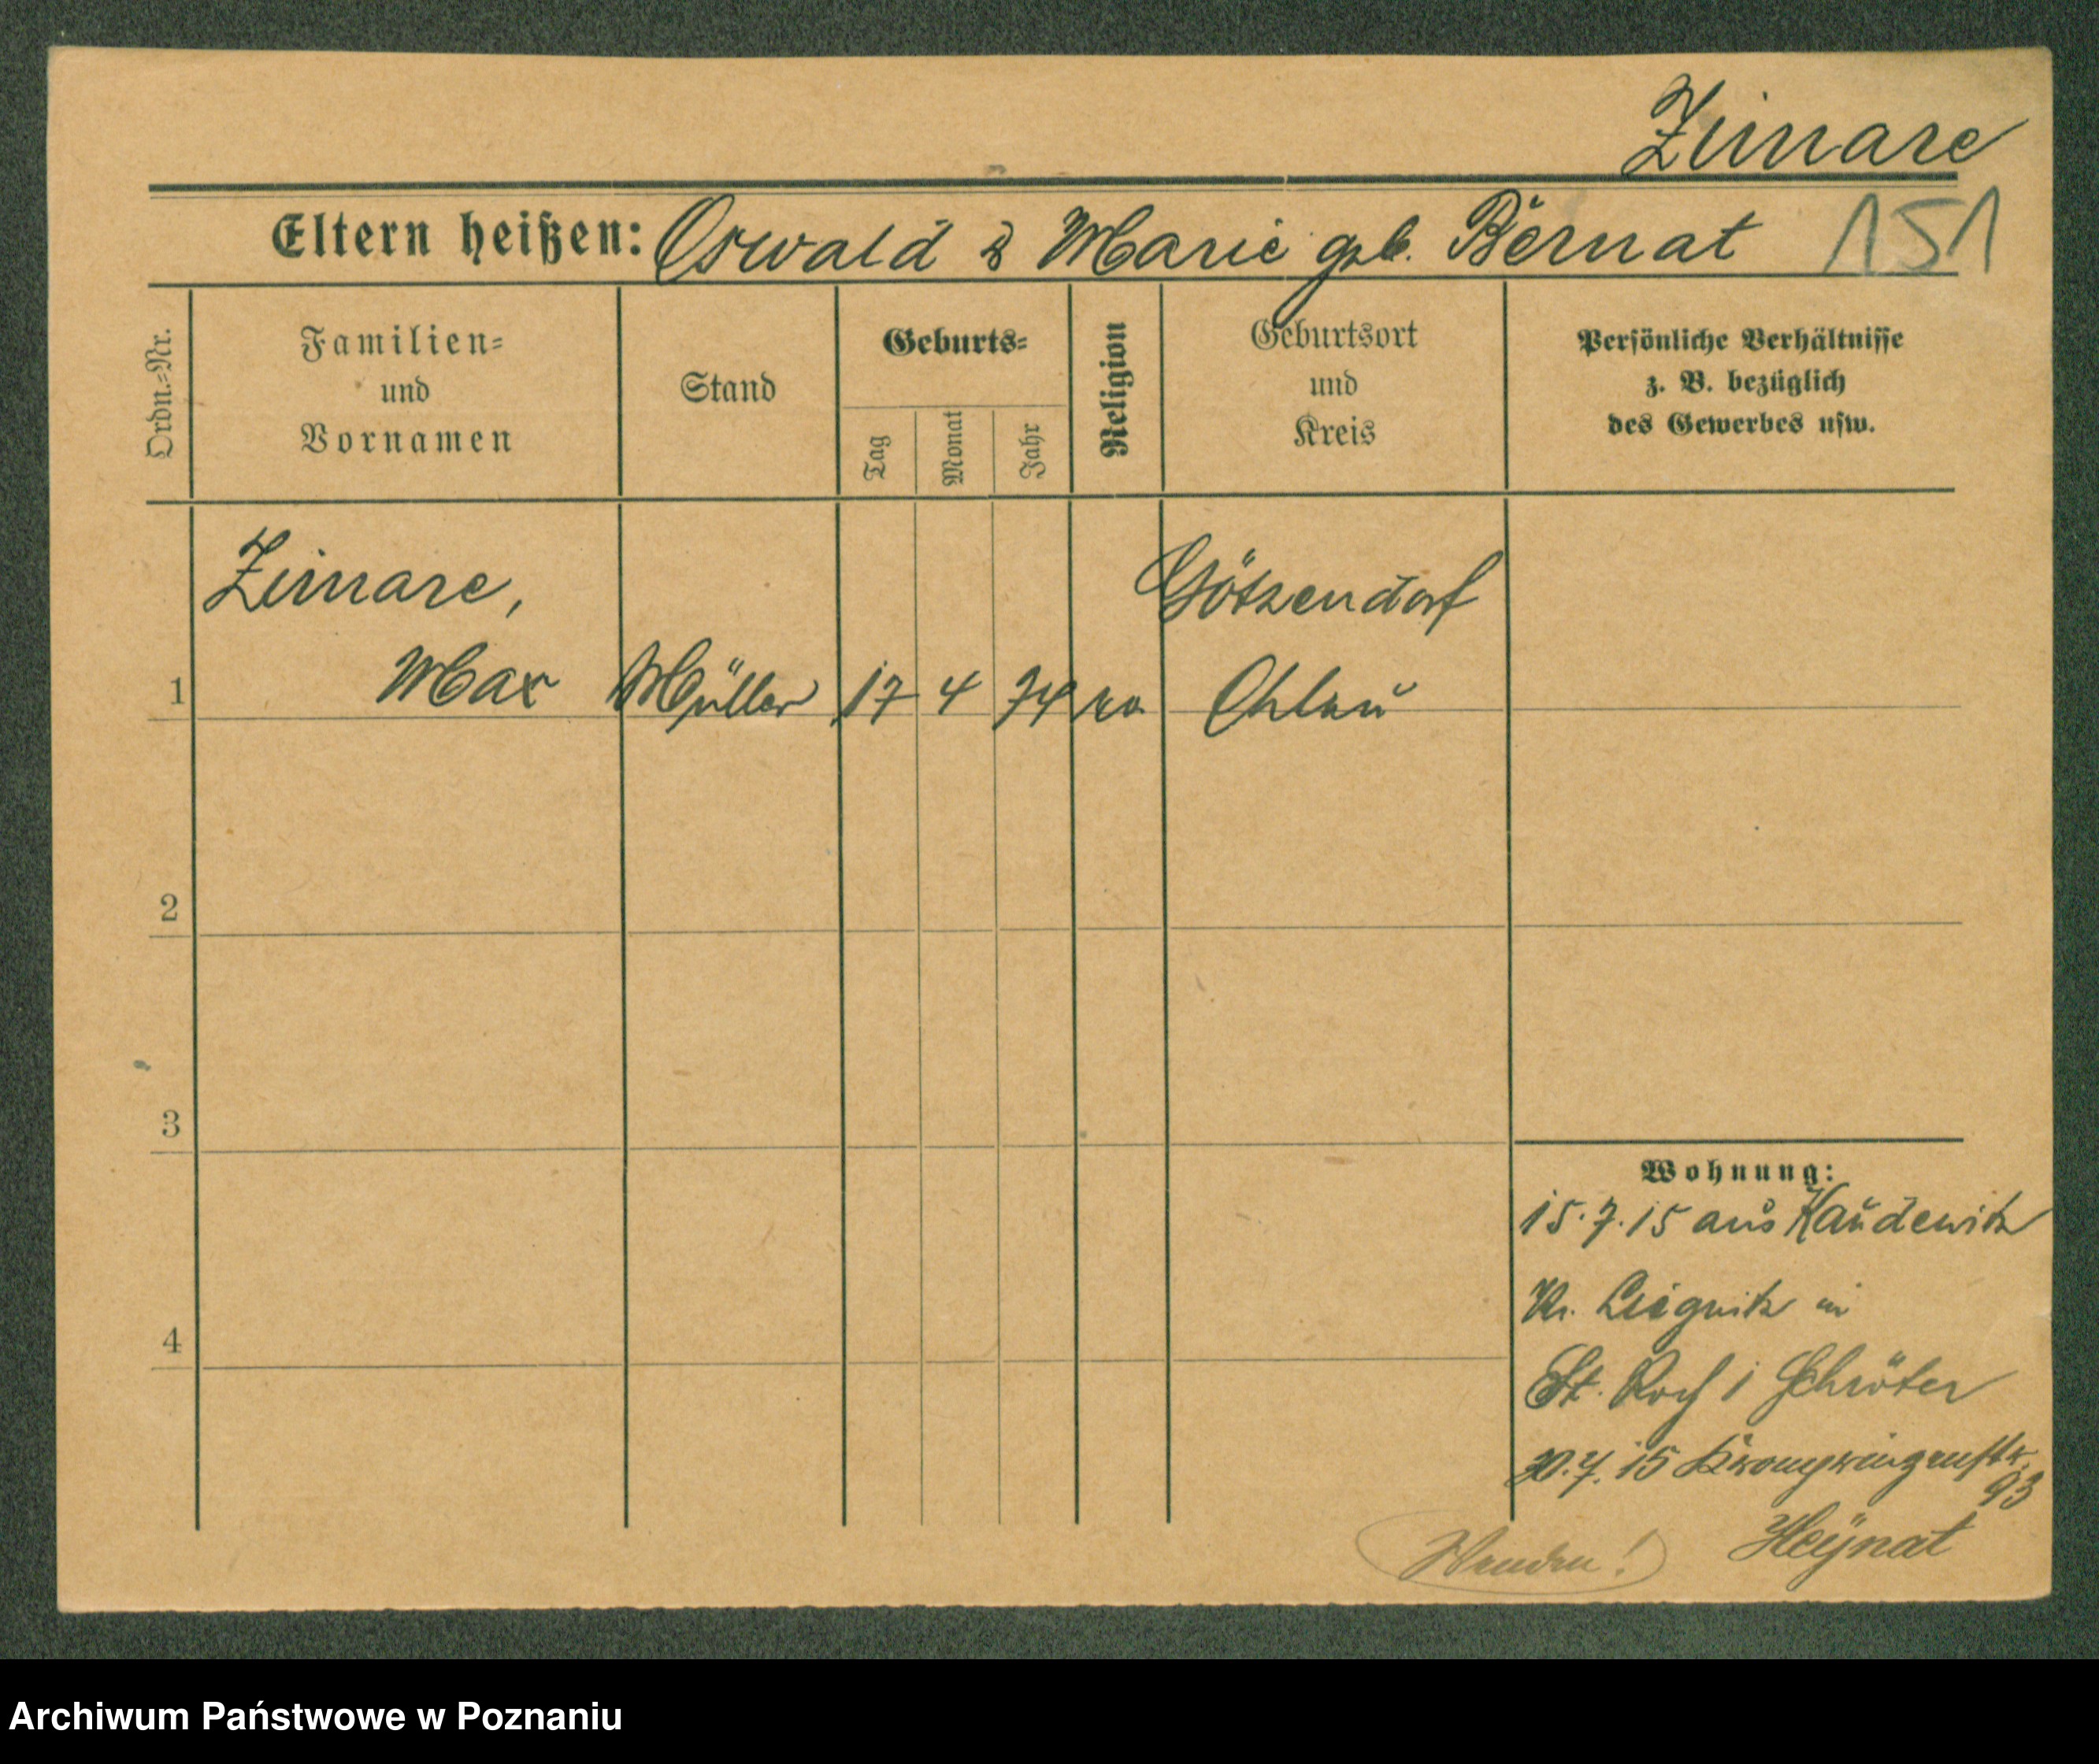 Zimare
Eltern heißen: Oswald & Marie geb. Bernat 151
Ordn.-Nr.
Familien-
und
Vornamen
Stand
Geburts-
Tag
Monat
Jahr
Religion
Geburtsort
und
Kreis
Persönliche Verhältnisse
z. B. bezüglich
des Gewerbes usw.
Zimare, Götzendorf
1 Max Müller 17 4 74 ka Ohlau
2
3
4
Wohnung:
15.7.15 aus Kaudewitz
Kr. Liegnitz in
St. Roch 1 Schröter
20.7.15 Kronprinzenstr.
93
Heynat
Wenden!
Archiwum Państwowe w Poznaniu